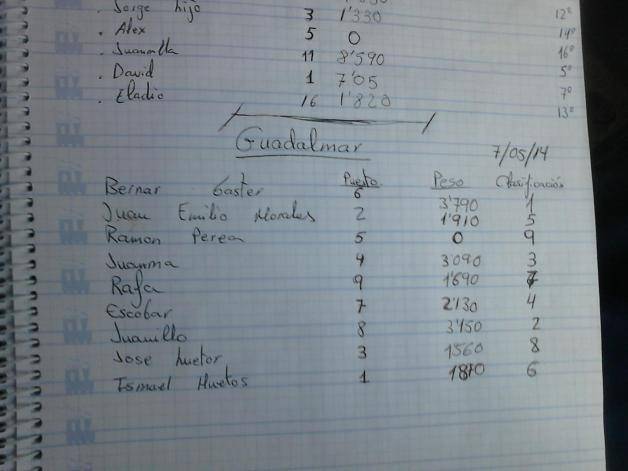 . Jorge hijo 3 1'330 12º
. Alex 5 0 14º
. Juanolla 11 8'590 16º
. David 1 7'05 5º
. Eladio 16 1'820 7º
13º
Guadalmar 7/05/14
Puesto Peso Clasificación
Bernar Gaster 6 3'790 1
Juan Emilio Morales 2 1'910 5
Ramon Perea 5 0 9
Juanma 4 3'090 3
Rafa 9 1'690 7
Escobar 7 2'130 4
Juanillo 8 3'150 2
Jose Huetor 3 1560 8
Ismael Huetos 1 1870 6